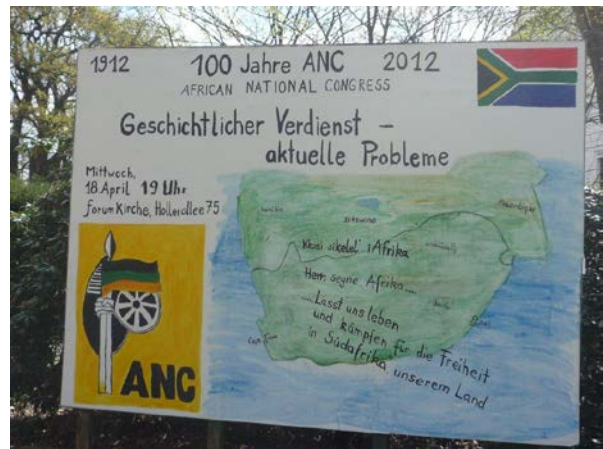 1912 100 Jahre ANC 2012
AFRICAN NATIONAL CONGRESS
Geschichtlicher Verdienst –
aktuelle Probleme
Mittwoch,
18. April 19 Uhr
forum Kirche, Hollerallee 75
Nkosi sikelel' iAfrika
Herr, segne Afrika....
....Lasst uns leben
und kämpfen für die Freiheit
in Südafrika unserem Land
ANC